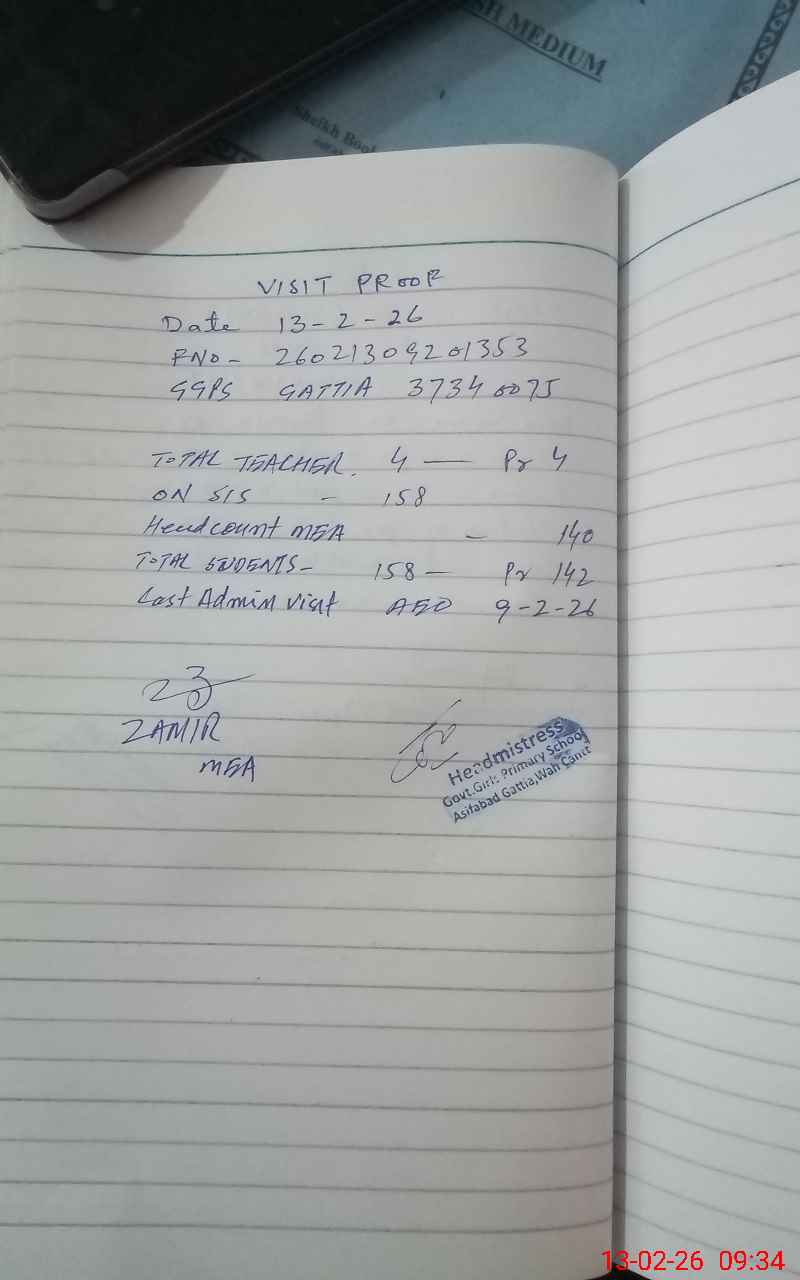 SH MEDIUM
Sheikh Book
VISIT PROOF
Date 13-2-26
FNo- 26021309201353
GGPS GATTIA 37340075
TOTAL TEACHER. 4 — Pr 4
ON SIS - 158
Headcount MEA - 140
TOTAL STUDENTS- 158 — Pr 142
Last Admin visit AEO 9-2-26
ZAMIR
MEA
Headmistress
Govt.Girls Primary School
Asifabad Gattia,Wah Cantt
13-02-26 09:34